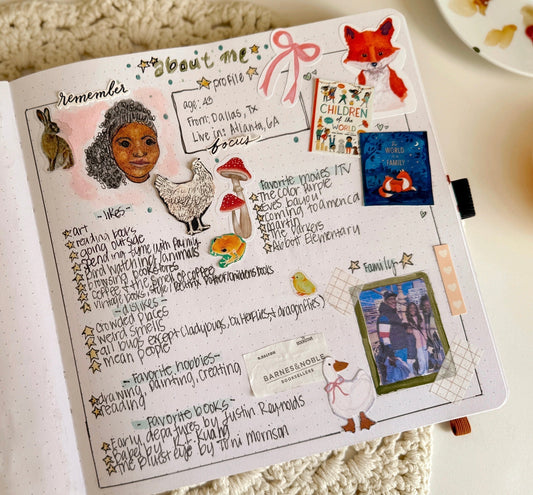 about me
remember
profile
age: 23
From: Dallas, TX
Live in: Atlanta, GA
focus
CHILDREN
of the WORLD
the
WORLD
is a
FAMILY
-likes-
art
reading books
going outside
spending time with family
bird watching/animals
browsing bookstores
coffee & the smell of coffee
vintage books, title/beatrix potter/childrens books
-dislikes-
crowded places
weird smells
all bugs except (ladybugs, butterflies, & dragonflies)
mean people
-Favorite hobbies-
drawing, painting, creating
reading
-Favorite books-
Early departures by Justin Reynolds
babel by r.f. Kuang
the bluest eye by Toni Morrison
Favorite movies/TV
The color purple
Eves bayou
Coming to america
Martin
The Parkers
Abbott Elementary
Family
BARNES&NOBLE
BOOKSELLERS